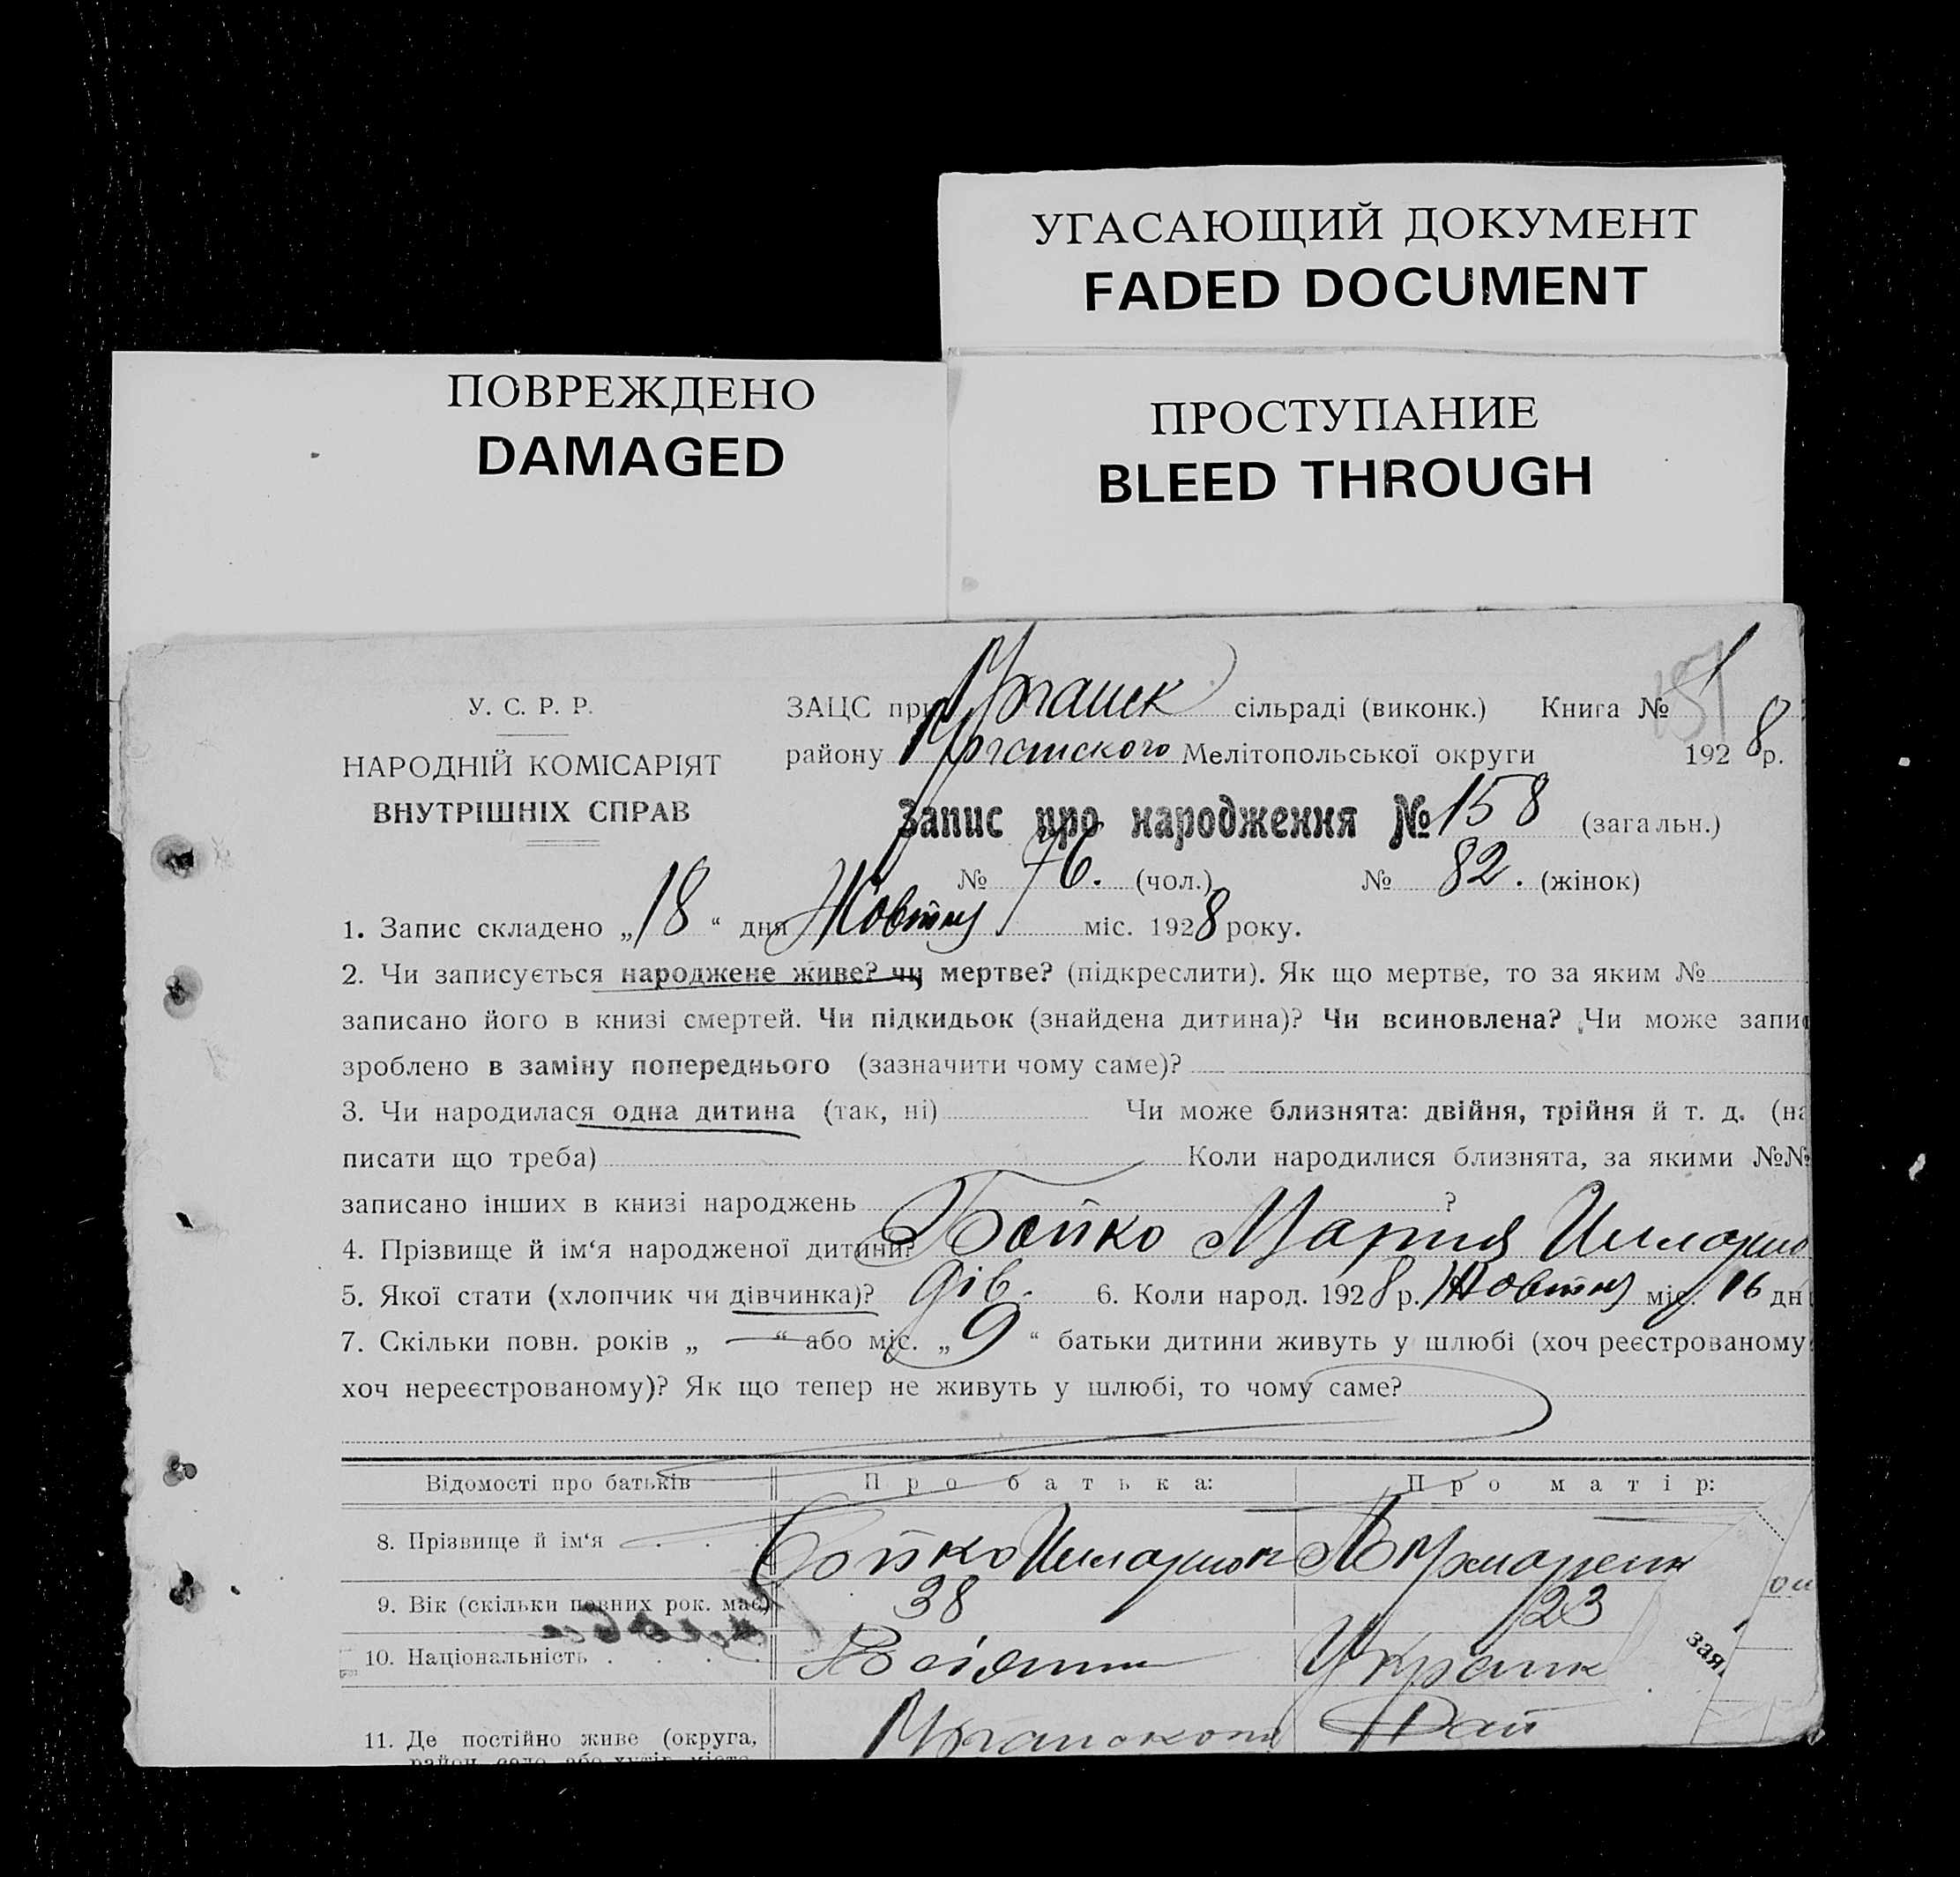 УГАСАЮЩИЙ ДОКУМЕНТ
FADED DOCUMENT
ПОВРЕЖДЕНО
DAMAGED
ПРОСТУПАНИЕ
BLEED THROUGH
У. С. Р. Р.
НАРОДНІЙ КОМІСАРІЯТ
ВНУТРІШНІХ СПРАВ
ЗАЦС при сільраді (виконк.) Книга №
району Мелітопольської округи 1928 р.
Запис про народження № 158 (загальн.)
№ 76. (чол.) № 82. (жінок)
1. Запис складено „18“ дня Жовтня міс. 1928 року.
2. Чи записується народжене живе? чи мертве? (підкреслити). Як що мертве, то за яким №
записано його в книзі смертей. Чи підкидьок (знайдена дитина)? Чи всиновлена? Чи може запис
зроблено в заміну попереднього (зазначити чому саме)?
3. Чи народилася одна дитина (так, ні) Чи може близнята: двійня, трійня й т. д. (на
писати що треба) Коли народилися близнята, за якими №№
записано інших в книзі народжень ?
4. Прізвище й ім‘я народженої дитини? Бойко Мария
5. Якої стати (хлопчик чи дівчинка)? дів. 6. Коли народ. 1928 р. Жовтня міс. 16 дн
7. Скільки повн. років „ — “ або міс. „ 9 “ батьки дитини живуть у шлюбі (хоч реєстрованому
хоч нереєстрованому)? Як що тепер не живуть у шлюбі, то чому саме?
Відомості про батьків Про батька: Про матір:
8. Прізвище й ім‘я . . . Бойко Иларион
9. Вік (скільки повних рок. має) 38 23
10. Національність . . . . Україн
11. Де постійно живе (округа,
район, село або хутір, місто